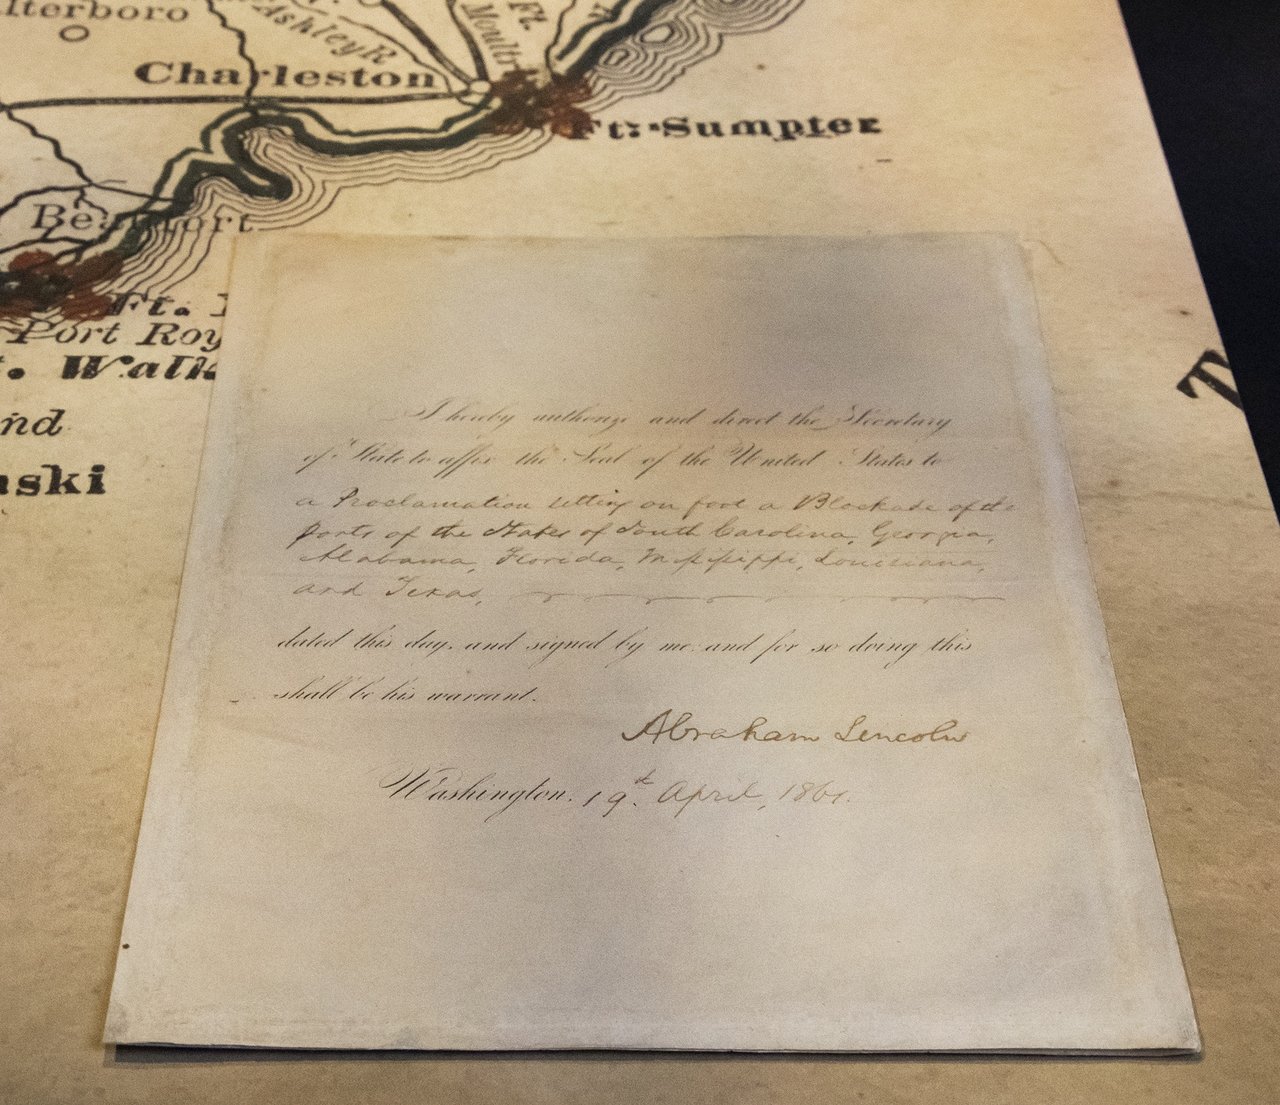 lterboro
Ashley R
Ft.
Moultr
Charleston
Ft: Sumpter
Beaufort
Ft.
Port Roy
t. Walk
nd
aski
T
I hereby authorize and direct the Secretary
of State to affix the Seal of the United States to
a Proclamation setting on foot a Blockade of the
ports of the States of South Carolina, Georgia,
Alabama, Florida, Mississippi, Louisiana,
and Texas,
dated this day, and signed by me: and for so doing this
shall be his warrant.
Abraham Lincoln
Washington, 19th April, 1861.